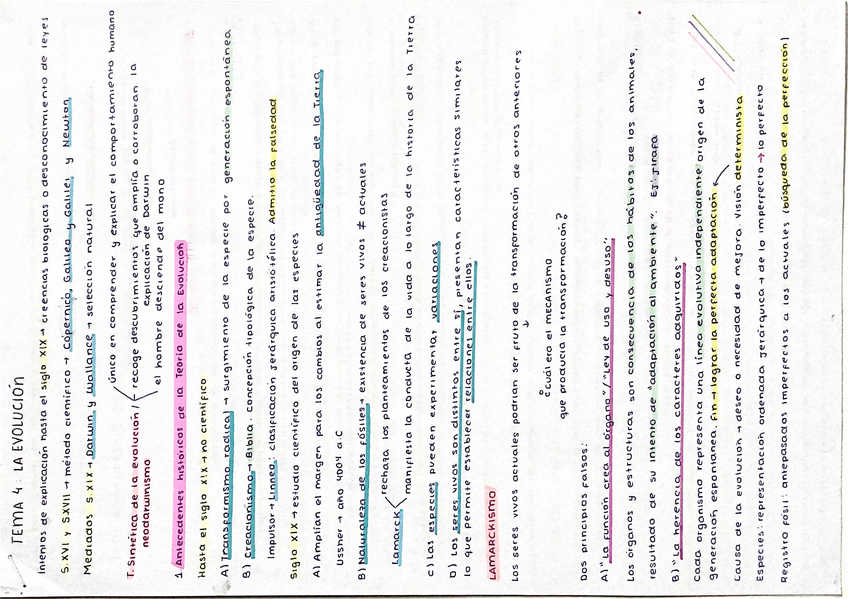 TEMA 4: LA EVOLUCIÓN
Intentos de explicación hasta el siglo XIX → creencias biológicas o desconocimiento de leyes
S. XVI y S.XVII → método científico → Copérnico, Galileo y Galilei y Newton
Mediados S.XIX → Darwin y Wallance → selección natural
único en comprender y explicar el comportamiento humano
T. Sintética de la evolución / → recoge descubrimientos que amplía o corroboran la
neodarwinismo explicación de Darwin
el hombre desciende del mono
1 Antecedentes históricos de la Teoría de la Evolución
Hasta el siglo XIX → no científico
A) Transformismo radical → surgimiento de la especie por generación espontánea
B) Creacionismo → Biblia. concepción tipológica de la especie.
Impulsor → Linneo: clasificación jerárquica aristotélica. Admitió la falsedad
Siglo XIX → estudio científico del origen de las especies
A) Amplían el margen para los cambios al estimar la antigüedad de la Tierra
Ussher → año 4004 a.C
B) Naturaleza de los fósiles → existencia de seres vivos ≠ actuales
rechaza los planteamientos de los creacionistas
Lamarck
manifiesta la conducta de la vida a lo largo de la historia de la Tierra
C) Las especies pueden experimentar variaciones
D) Los seres vivos son distintos entre sí, presentan características similares
lo que permite establecer relaciones entre ellos.
LAMARCKISMO
Los seres vivos actuales podrían ser fruto de la transformación de otros anteriores
↓
¿cuál era el MECANISMO
que producía la transformación?
Dos principios falsos:
A) "La función crea al órgano" / "Ley de uso y desuso":
Los órganos y estructuras son consecuencia de los hábitos de los animales,
resultado de su intento de "adaptación al ambiente". Ej: jirafa
B) "La herencia de los caracteres adquiridos"
Cada organismo representa una línea evolutiva independiente origen de la
generación espontánea. Fin → lograr la perfecta adaptación
Causa de la evolución → deseo o necesidad de mejora. Visión determinista
Especies: representación ordenada jerárquica → de lo imperfecto → lo perfecto
Registro fósil: antepasados imperfectos a los actuales (búsqueda de la perfección)